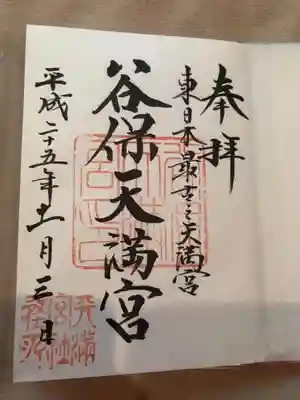 奉拝
東日本最古之天満宮
谷保天満宮
平成二十五年十一月三日
天満宮社務所